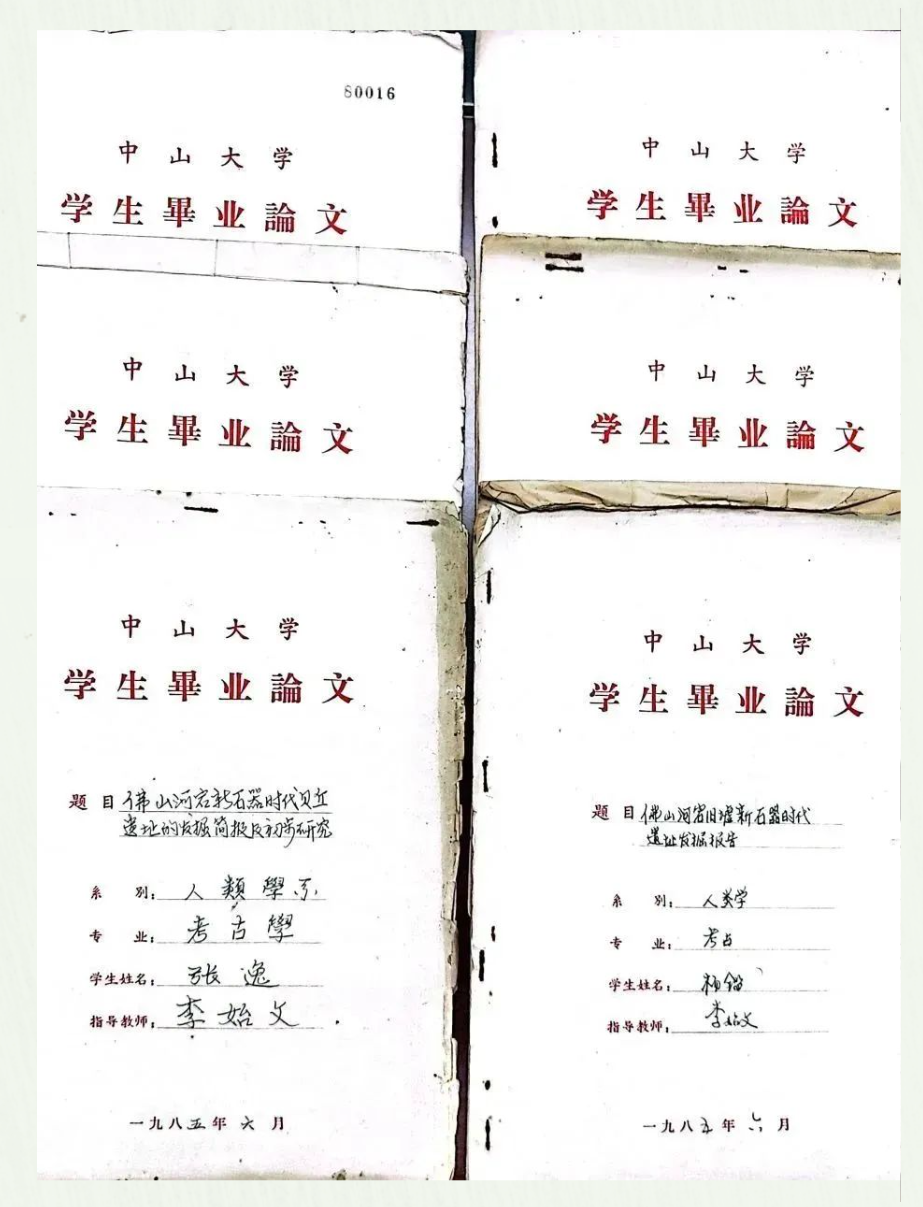 80016
中山大学
学生畢业論文
中山大学
学生畢业論文
中山大学
学生畢业論文
中山大学
学生畢业論文
中山大学
学生畢业論文
题目 佛山河宕新石器时代贝丘
遗址的发掘简报及初步研究
系别: 人類學系
专业: 考古學
学生姓名: 张逸
指导教师: 李始文
一九八五年六月
中山大学
学生畢业論文
题目 佛山河宕旧墟新石器时代
遗址发掘报告
系别: 人类学
专业: 考古
学生姓名: 杨
指导教师: 李始文
一九八五年六月